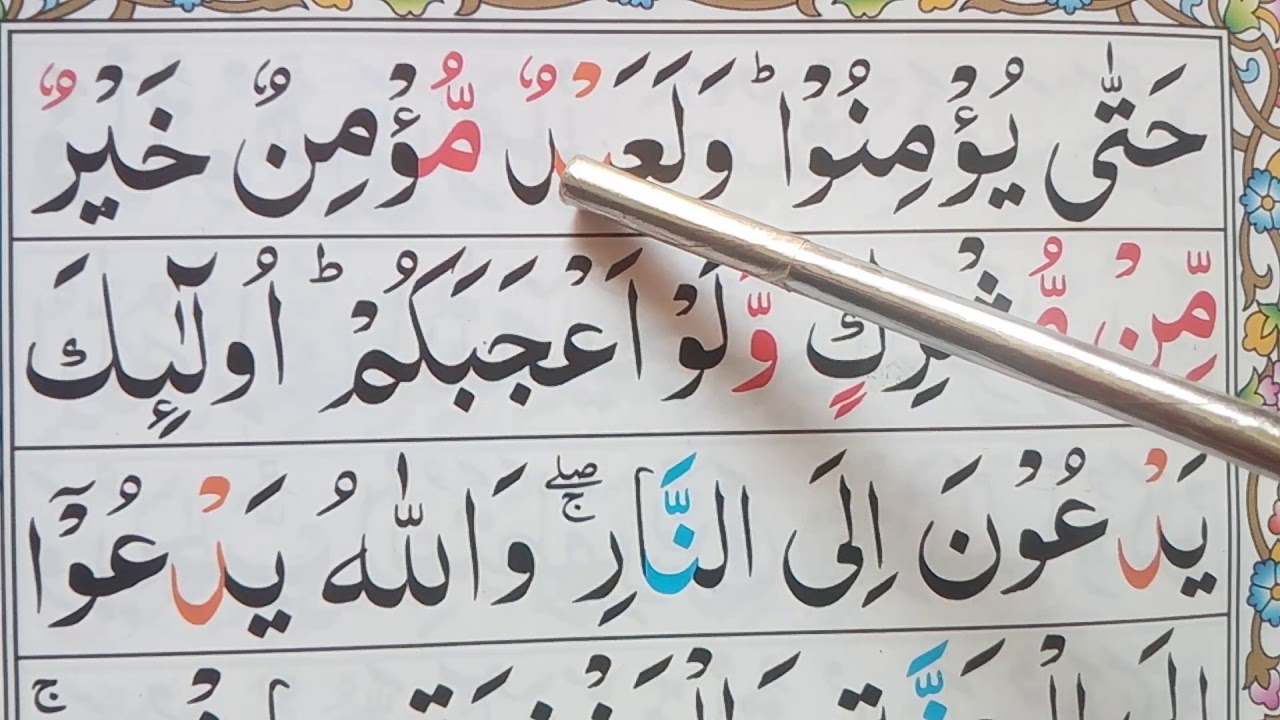 حَتّٰى يُؤْمِنُوْا ؕ وَلَعَبْدٌ مُّؤْمِنٌ خَيْرٌ
مِّنْ مُّشْرِكٍ وَّلَوْ اَعْجَبَكُمْ ؕ اُولٰٓئِكَ
يَدْعُوْنَ اِلَى النَّارِ ۖۚ وَاللّٰهُ يَدْعُوْٓا